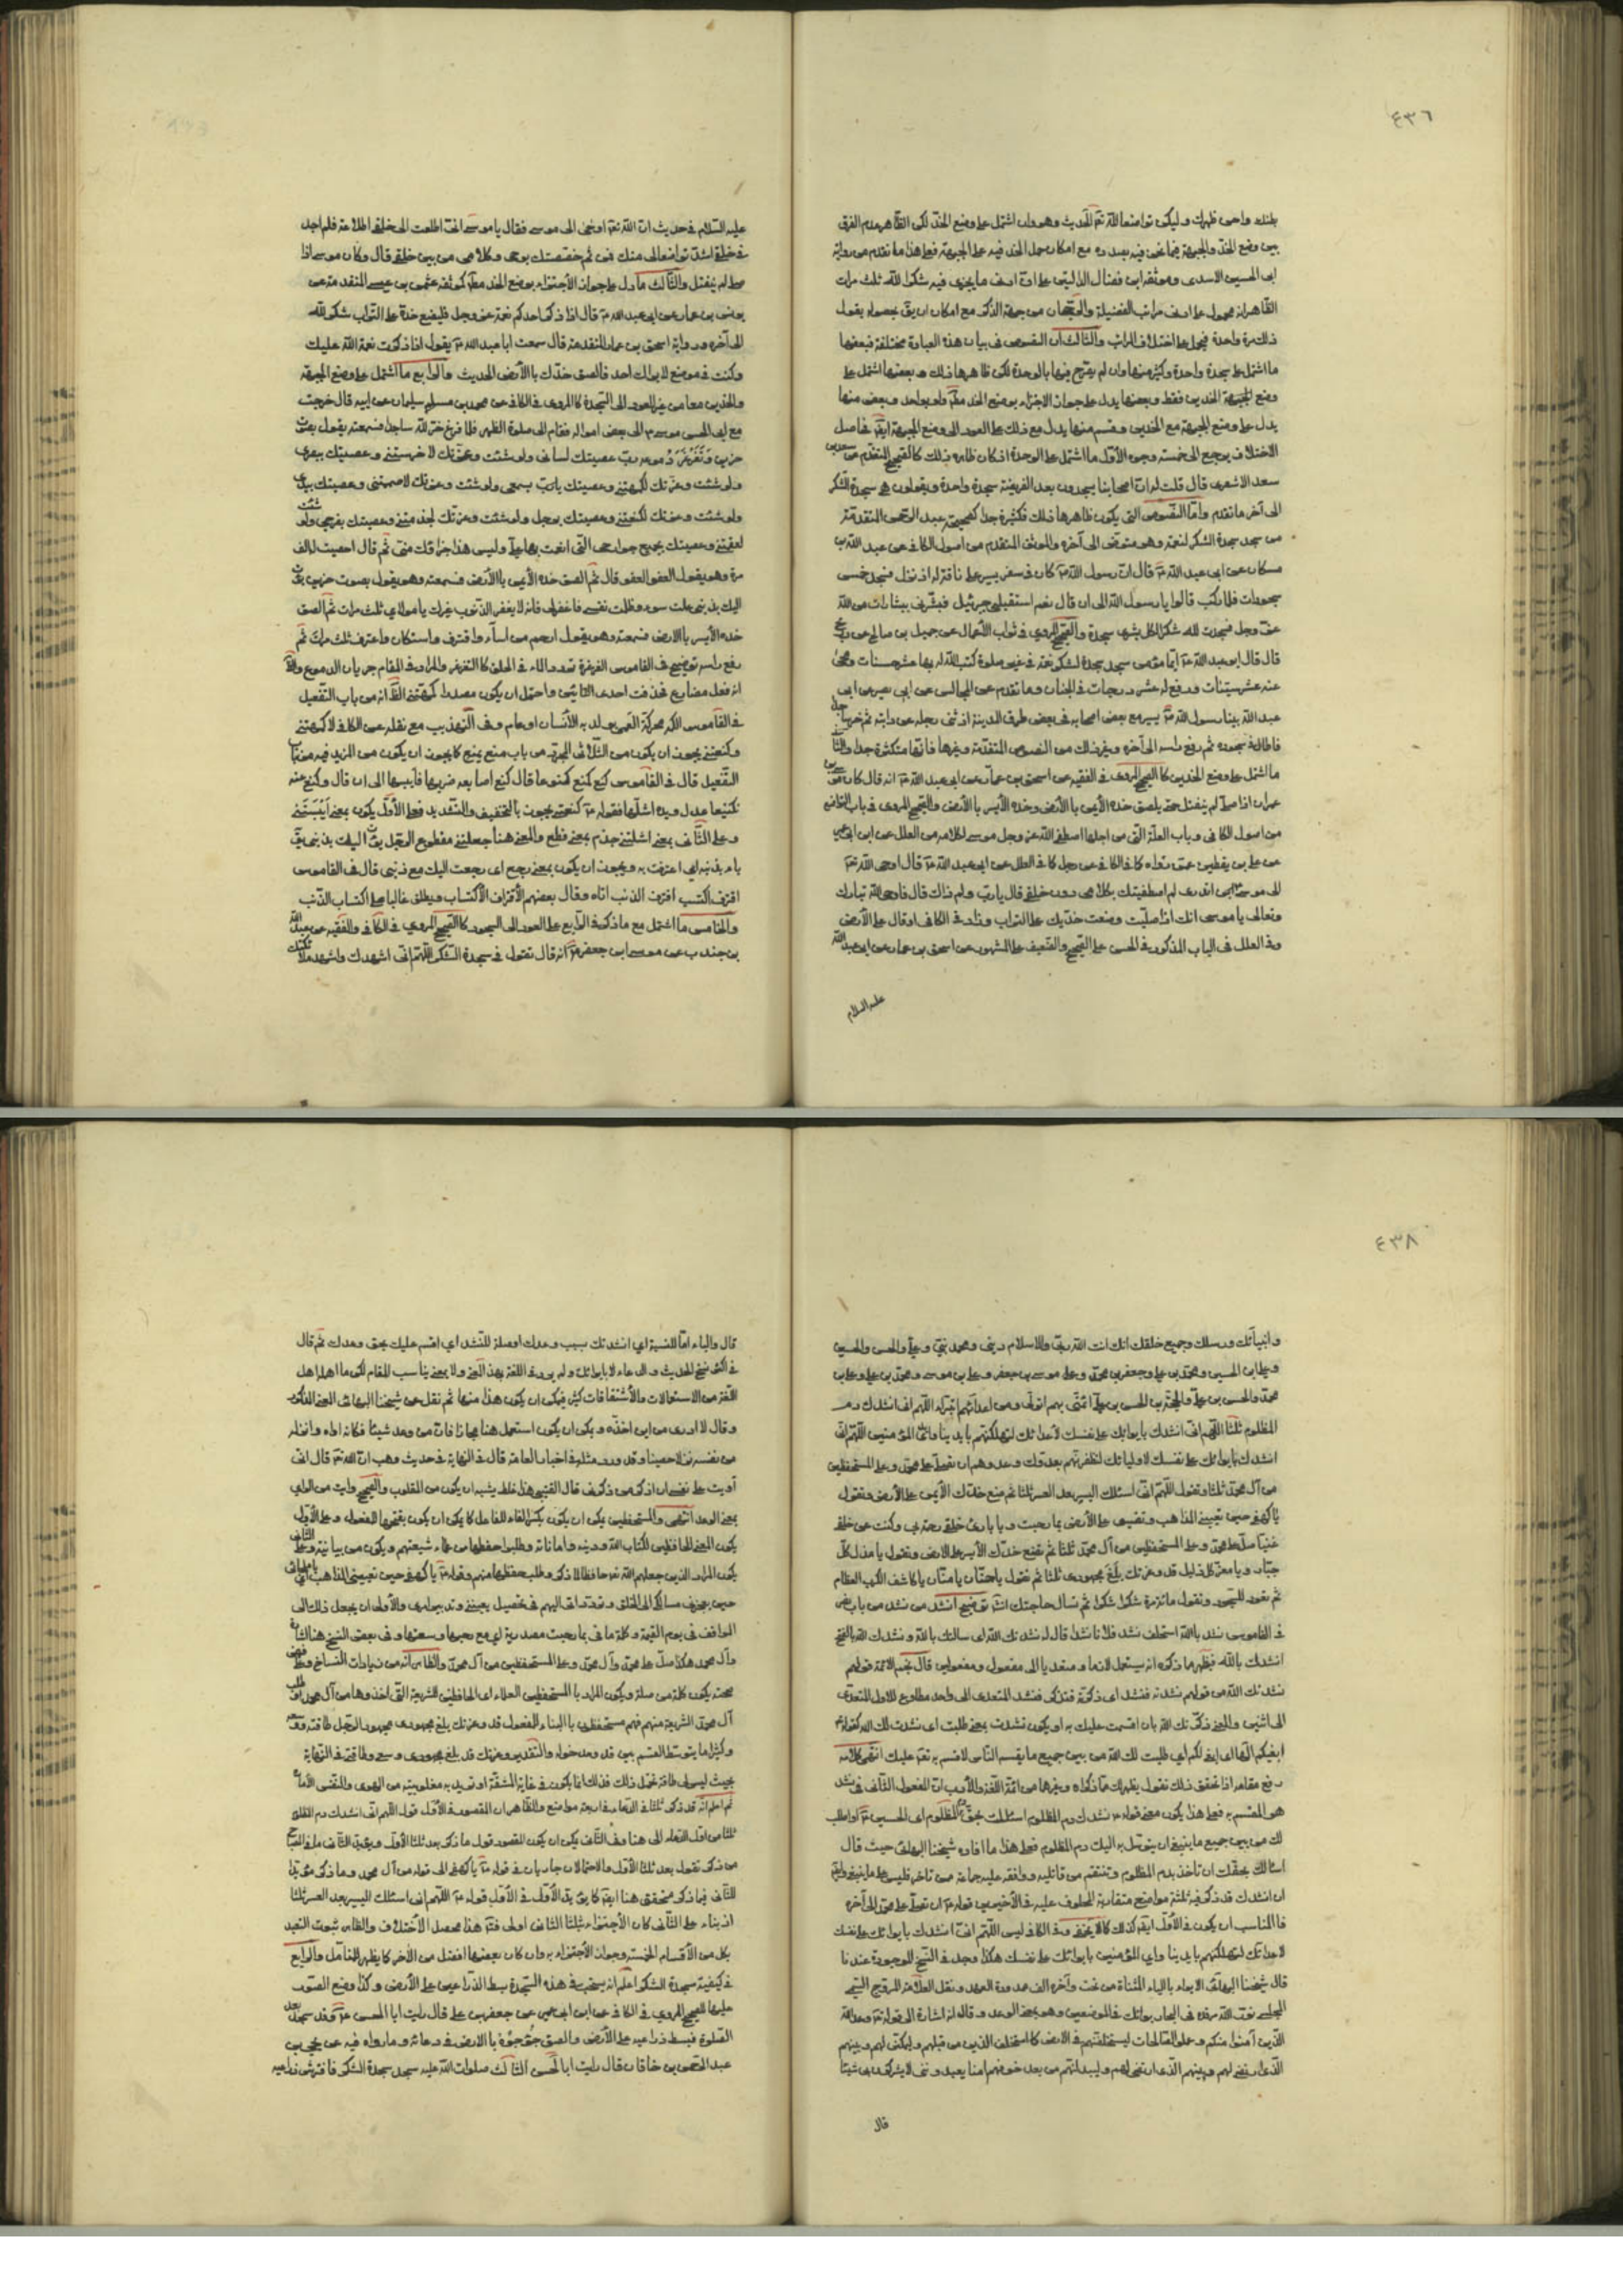 ٤٣٦
بطنك واحن ظهرك وليكن تواضعا لله تعـ الحديث وهو وان اشتمل على وضع الخد لكن الظاهر عدم الفرق
بين وضع الخد والجبهة فيما نحن فيه بصدده مع امكان حمل الخد فيه على الجبهة فعلى هذا ما تقدم من رواية
ابى الحسين الاسدى وموثقة ابن فضال الدالتين على ان ادنى ما يجزى فيه شكرا لله ثلث مرات
الظاهر انه محمول على ادنى مراتب الفضيلة والرجحان من جهة الذكر مع امكان ان يق بحصوله بقول
ذلك مرة واحدة فيحمل على اختلاف المراتب والثالث ان النصوص فى بيان هذه العبادة مختلفة فبعضها
ما اشتمل على سجدة واحدة وكثير منها وان لم يصرح فيها بالوحدة لكن ظاهرها ذلك وبعضها اشتمل على
وضع الجبهة الخدين فقط وبعضها يدل على جواز الاجتزاء بوضع الخد مقـ ولو بواحد وبعض منها
يدل على وضع الجبهة مع الخدين وقسم منها يدل مع ذلك على العود الى وضع الجبهة ايضا فحاصل
الاختلاف يرجع الى خمسة وجوه الاول ما اشتمل على الوحدة او كان ظاهره ذلك كالصحيح المتقدم عن سعد بن
سعد الاشعرى قال قلت له ان اصحابنا يسجدون بعد الفريضة سجدة واحدة ويقولون هى سجدة الشكر
الى آخر ما تقدم واما النصوص التى يكون ظاهرها ذلك فكثيرة جدا كصحيحة عبد الرحمن المتقدمة
من سجد سجدة الشكر لنعمة وهو متوضئ الى آخره والموثق المتقدم من اصول الكافى عن عبد الله بن
مسكان عن ابى عبد الله عـ قال ان رسول الله صـ كان فى سفر يسير على ناقة له اذ نزل فسجد خمس
سجدات فلما ركب قالوا يا رسول الله الى ان قال نعم استقبلنى جبرئيل فبشرنى ببشارات من الله
عز وجل فسجدت لله شكرا لكل بشرى سجدة والصحيح المروى فى ثواب الاعمال عن جميل بن صالح عن
قال قال ابو عبد الله عـ ايما مؤمن سجد سجدة لشكر نعمة فى غير صلوة كتب الله له بها عشر حسنات ومحى
عنه عشر سيئات ورفع له عشر درجات فى الجنان وما تقدم عن المجالس عن ابى بصير عن ابى
عبد الله بينا رسول الله صـ يسير مع بعض اصحابه فى بعض طرق المدينة اذ ثنى رجله عن دابته ثم خر ساجدا
فاطال فى سجوده ثم رفع راسه الى آخره وغير ذلك من النصوص المتقدمة وغيرها فانها متكثرة جدا والثانى
ما اشتمل على وضع الخدين كالصحيح المروى فى الفقيه عن اسحق بن عمار عن ابى عبد الله عـ انه قال كان موسى بن
عمران اذا صلى لم ينفتل حتى يلصق خده الأيمن بالأرض وخده الأيسر بالأرض والصحيح المروى فى باب التواضع
من اصول الكافى وباب العلة التى من اجلها اصطفى الله عز وجل موسى لكلامه من العلل عن ابن ابى عمير
عن على بن يقطين عمن رواه كما فى الكافى عن رجل كما فى العلل عن ابى عبد الله عـ قال اوحى الله تعـ
الى موسى اتدرى لم اصطفيتك بكلامى دون خلقى قال يارب ولم ذاك قال فاوحى الله تبارك
وتعالى يا موسى انك اذا صليت وضعت خديك على التراب وزاد فى الكافى او قال على الأرض
وفى العلل فى الباب المذكور فى الحسن على الصحيح والضعيف على المشهور عن اسحق بن عمار عن ابى عبد الله
عليه السلام
عليه السلام فى حديث ان الله تعـ اوحى الى موسى فقال يا موسى انى اطلعت الى خلقى اطلاعة فلم اجد
فى خلقى اشد تواضعا لى منك فمن ثم خصصتك بوحى وكلامى من بين خلقى قال وكان موسى اذا
صلى لم ينفتل والثالث ما دل على جواز الأجتزاء بوضع الخد مقـ كموثقة عثمن بن عيسى المتقدمة عن
يونس بن عمار عن ابى عبد الله عـ قال اذا ذكر احدكم نعمة عز وجل فليضع خده على التراب شكرا لله
الى آخره ورواية اسحق بن عمار المتقدمة قال سمعت ابا عبد الله عـ يقول اذا ذكرت نعمة الله عليك
وكنت فى موضع لا يراك احد فالصق خدك بالأرض الحديث والرابع ما اشتمل على وضع الجبهة
والخدين معا من غير العود الى السجدة كالمروى فى الكافى عن محمد بن سليمان عن ابيه قال خرجت
مع ابى الحسن موسى عـ الى بعض امواله فقام الى صلوة الظهر فلما فرغ خر لله ساجدا فسمعته يقول بصوت
حزين وتغرغر دموعه رب عصيتك لسانى ولو شئت وعزتك لاخرستنى وعصيتك ببصرى
ولو شئت وعزتك لكمهتنى وعصيتك يارب بسمعى ولو شئت وعزتك لاصممتنى وعصيتك بيدى
ولو شئت وعزتك لكنعتنى وعصيتك برجلى ولو شئت وعزتك لجذمتنى وعصيتك بفرجى ولو شئت
لعقمتنى وعصيتك بجميع جوارحى التى انعمت بها على وليس هذا جزاؤك منى ثم قال احصيت له الف
مرة وهو يقول العفو العفو قال ثم الصق خده الأيمن بالأرض فسمعته وهو يقول بصوت حزين بؤت
اليك بذنبى عملت سوء وظلمت نفسى فاغفر لى فانه لا يغفر الذنوب غيرك يا مولاى ثلث مرات ثم الصق
خده الأيسر بالارض فسمعته وهو يقول ارحم من اساء واقترف واستكان واعترف ثلث مرات ثم
رفع راسه توضيح فى القاموس الغرغرة تردد الماء فى الحلق كالتغرغر والمراد فى المقام جريان الدموع والظ
انه فعل مضارع فحذفت احدى التائين واحتمل ان يكون مصدرا كمهتنى الظ انه من باب التفعيل
فى القاموس الكمه محركة العمى يولد به الأنسان او عام وفى التهذيب مع نقله عن الكافى لاكمهتنى
وكنعتنى يجوز ان يكون من الثلاثى المجرد من باب منع يمنع كما يجوز ان يكون من المزيد فيه من باب
التفعيل قال فى القاموس كنع كمنع كنوعا قال كنع اصابعه ضربها فايبسها الى ان قال وكنع عنه
تكنيعا عدل ويده اشلها فقوله عـ كنعتنى يجوز بالتخفيف والتشديد فعلى الأول يكون بمعنى ايبستنى
وعلى الثانى بمعنى اشللتنى جذم بمعنى قطع والمعنى هنا جعلتنى مقطوع الرجل بؤت اليك بذنبى يق
باء بذنبه اى اعترف به ويجوز ان يكون بمعنى رجع اى رجعت اليك مع ذنبى قال فى القاموس
اقترف اكتسب اقترف الذنب اتاه وقال بعضهم الأقتراف الأكتساب ويطلق غالبا على اكتساب الذنب
والخامس ما اشتمل مع ما ذكر فى الرابع على العود الى السجود كالصحيح المروى فى الكافى والفقيه عن عبد الله
بن جندب عن موسى بن جعفر عـ انه قال تقول فى سجدة الشكر اللهم انى اشهدك واشهد ملائكتك
٤٣٨
وانبيائك ورسلك وجميع خلقك انك انت الله ربى والاسلام دينى ومحمد نبيى وعلى والحسن والحسين
وعلى بن الحسين ومحمد بن على وجعفر بن محمد وعلى موسى بن جعفر وعلى بن موسى ومحمد بن على وعلى بن
محمد والحسن بن على والحجة بن الحسن بن على ائمتى بهم اتولى ومن اعدائهم اتبراء اللهم انى انشدك دم
المظلوم ثلثا اللهم انى انشدك بايوائك على نفسك لأعدائك لتهلكنهم بايدينا وايدى المؤمنين اللهم انى
انشدك بايوائك على نفسك لاوليائك لتظفرنهم بعدوك وعدوهم ان تصلى على محمد وعلى المستحفظين
من آل محمد ثلثا وتقول اللهم انى اسئلك اليسر بعد العسر ثلثا ثم تضع خدك الأيمن على الأرض وتقول
يا كهفى حين تعيينى المذاهب وتضيق على الأرض بما رحبت ويا بارئ خلقى رحمة بى وكنت عن خلقى
غنيا صل على محمد وعلى المستحفظين من آل محمد ثلثا ثم تضع خدك الأيسر على الارض وتقول يا مذل كل
جبار ويا معز كل ذليل قد وعزتك بلغ مجهودى ثلثا ثم تقول يا حنان يا منان يا كاشف الكرب العظام
ثم تعود للسجود وتقول مائة مرة شكرا شكرا ثم تسأل حاجتك انشـ توضيح انشد من نشد من باب نصر
فى القاموس نشد بالله استحلف نشد فلانا نشدا قال له نشدتك الله اى سالتك بالله ونشدك الله بالفتح
انشدك بالله فيظهر مما ذكره انه يستعمل لازما ومتعديا الى مفعول ومفعولين قال نجم الائمة قولهم
نشدتك الله من قولهم نشدته فنشد اى ذكرته فتذكر فنشد المتعدى الى واحد مطاوع للاول المتعدى
الى اثنين والمعنى ذكرتك الله بان اقسمت عليك به او يكون نشدت بمعنى طلبت اى نشدت لك الله كقوله تعـ
ابغيكم الها اى ابغى لكم اى طلبت لك الله من بين جميع ما يقسم الناس لاقسم به تعـ عليك انتهى كلامه
رفع مقامه اذا تحقق ذلك نقول يظهر لك مما ذكراه وغيرها من ائمة اللغة والأدب ان المفعول الثانى فى نشد
هو المقسم به فعلى هذا يكون معنى قوله عـ نشدتك دم المظلوم اسئلك بحق دم المظلوم اى الحسين عـ او اطلب
لك من بين جميع ما ينبغى ان يتوسل به اليك دم المظلوم فعلى هذا ما افاده شيخنا البهائى حيث قال
اسالك بحقك ان تأخذ بدم المظلوم وتنتقم من قاتليه ووافقه عليه جماعة ممن تاخر فليس على ما ينبغى وايضا
ان انشدك قد ذكر فيه ثلثة مواضع متقاربة المحلوف عليه فى الأخيرين قوله عـ ان تصلى على محمد الى آخره
فالمناسب ان يكون فى الأول ايضا كذلك كما لا يخفى وفى الكافى ليس اللهم انى انشدك بايوائك على نفسك
لاعدائك لتهلكنهم بايدينا وايدى المؤمنين بايوائك على نفسك هكذا وجد فى النسخ الموجودة عندنا
قال شيخنا البهائى الايواء بالياء المثناة من تحت وآخره الف ممدودة العهد ونقل العلامة المروج السمى
المجلسى نور الله مرقده فى البحار بوائك فى الموضعين وهو بمعنى الوعد وقال انه اشارة الى قوله تعـ وعد الله
الذين آمنوا منكم وعملوا الصالحات ليستخلفنهم فى الارض كما استخلف الذين من قبلهم وليمكنن لهم دينهم
الذى ارتضى لهم وليبدلنهم من بعد خوفهم امنا يعبدوننى لا يشركون بى شيئا
قال
قال والباء اما للنسبة اى انشدتك بسبب وعدك او صلة للنشد اى اقسم عليك بحق وعدك ثم قال
فى اكثر نسخ الحديث والدعاء لا بايوائك ولم يرد فى اللغة بهذا المعنى ولا بمعنى يناسب المقام لكن ما اهمل اهل
اللغة من الاستعمالات والأشتقاقات كثير فيمكن ان يكون هذا منها ثم نقل عن شيخنا البهائى المعنى المذكور
وقال لا ادرى من اين اخذه ويمكن ان يكون استعمل هنا مجازا فان من وعد شيئا فكانه اواه وانزله
من نفسه منزلا حصينا وقد ورد مثله فى اخبار العامة قال فى النهاية فى حديث وهب ان الله تعـ قال انى
أويت على نفسى ان اذكر من ذكرنى قال القتيبى هذا غلط يشبه ان يكون من المقلوب والصحيح وايت من الواى
بمعنى الوعد انتهى والمستحفظين يمكن ان يكون بكسر الفاء للفاعل كما يمكن ان يكون بفتحها للمفعول وعلى الأول
يكون المعنى الحافظين لكتاب الله ودينه واماناته وطلبوا حفظها من علماء شيعتهم ويكون من بيانية وعلى الثانى
يكون المراد الذين جعلهم الله تعـ حفاظا لما ذكر وطلب حفظها منهم وقوله عـ يا كهفى حين تعيينى المذاهب اى يا ملجائى
حين يعجزنى مسالكى الى الخلق وترددانى اليهم فى تحصيل بعيتى وتدبير امرى والأولى ان يجعل ذلك الى
المواقف فى يوم القيمة وكلمة ما فى بما رحبت مصدرية اى مع رحبها وسعتها وفى بعض النسخ هنا كتاب
وآل محمد هكذا صل على محمد وآل محمد وعلى المستحفظين من آل محمد والظاهر انه من زيادات النساخ وعلى فرض
صحته يكون كلمة من صلة ويكون المراد بالمستحفظين العلماء اى الحافظين للشريعة التى اخذوها من آل محمد او طلب
آل محمد الشريعة منهم فهم مستحفظون بالبناء للمفعول قد وعزتك بلغ مجهودى مجهود الرجل طاقته ووسعه
وكثيرا ما يتوسط القسم بين قد ومدخوله والتقدير وعزتك قد بلغ مجهودى وسعى وطاقتى فى النهاية
بحيث ليس لى طاقة تحمل ذلك فذلك انما يكون فى غاية المشقة او تريد به مغلوبيته من الهوى والنفس الأمارة
ثم اعلم انه قد ذكر ثلثا فى الدعاء فى اربعة مواضع والظاهر ان المقصود فى الأول قوله اللهم انى انشدك دم المظلوم
ثلثا من اول الدعاء الى هنا وفى الثانى يمكن ان يكون المقصود قول ما ذكر بعد ثلثا الأول ويؤيد الثانى ما فى المصباح
من ذكر تقول بعد ثلثا الأول والاحتمالان جاريان فى قوله عـ يا كهفى الى قوله من آل محمد وما ذكر مؤيدا
للثانى فيما ذكر متحقق هنا ايضا كما يؤيد الأول فى الأول قوله عـ اللهم انى اسئلك اليسر بعد العسر ثلثا
اذ بناء على الثانى كان الأجتزاء بثلثا الثانى اولى فتم هذا محصل الأختلاف والظاهر ثبوت التعبد
بكل من الأقسام الخمسة وجواز الأجتزاء به وان كان بعضها افضل من الآخر كما يظهر للمتأمل والرابع
فى كيفية سجدة الشكر اعلم انه يستحب فى هذه السجدة بسط الذراعين على الأرض وكذا وضع الصدر
عليها للصحيح المروى فى الكافى عن ابن ابى عمير عن جعفر بن على قال رايت ابا الحسن عـ وقد سجد بعد
الصلوة فبسط ذراعيه على الأرض والصق جؤجؤه بالارض فى دعائه وما رواه فيه عن يحيى بن
عبد الرحمن بن خاقان قال رايت ابا الحسن الثالث صلوات الله عليه سجد سجدة الشكر فافترش ذراعيه